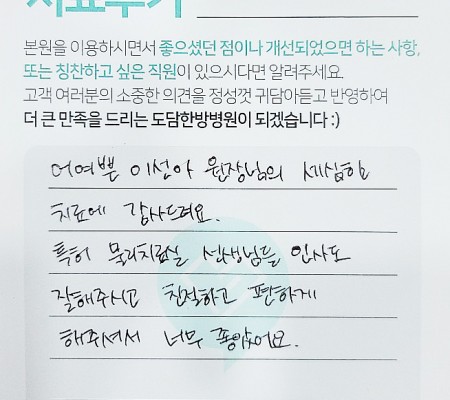 치료후기
본원을 이용하시면서 좋으셨던 점이나 개선되었으면 하는 사항,
또는 칭찬하고 싶은 직원이 있으시다면 알려주세요.
고객 여러분의 소중한 의견을 정성껏 귀담아듣고 반영하여
더 큰 만족을 드리는 도담한방병원이 되겠습니다 :)
어여쁜 이선아 원장님의 세심한
치료에 감사드려요.
특히 물리치료실 선생님들 인사도
잘해주시고 친절하고 편하게
해주셔서 너무 좋았어요.